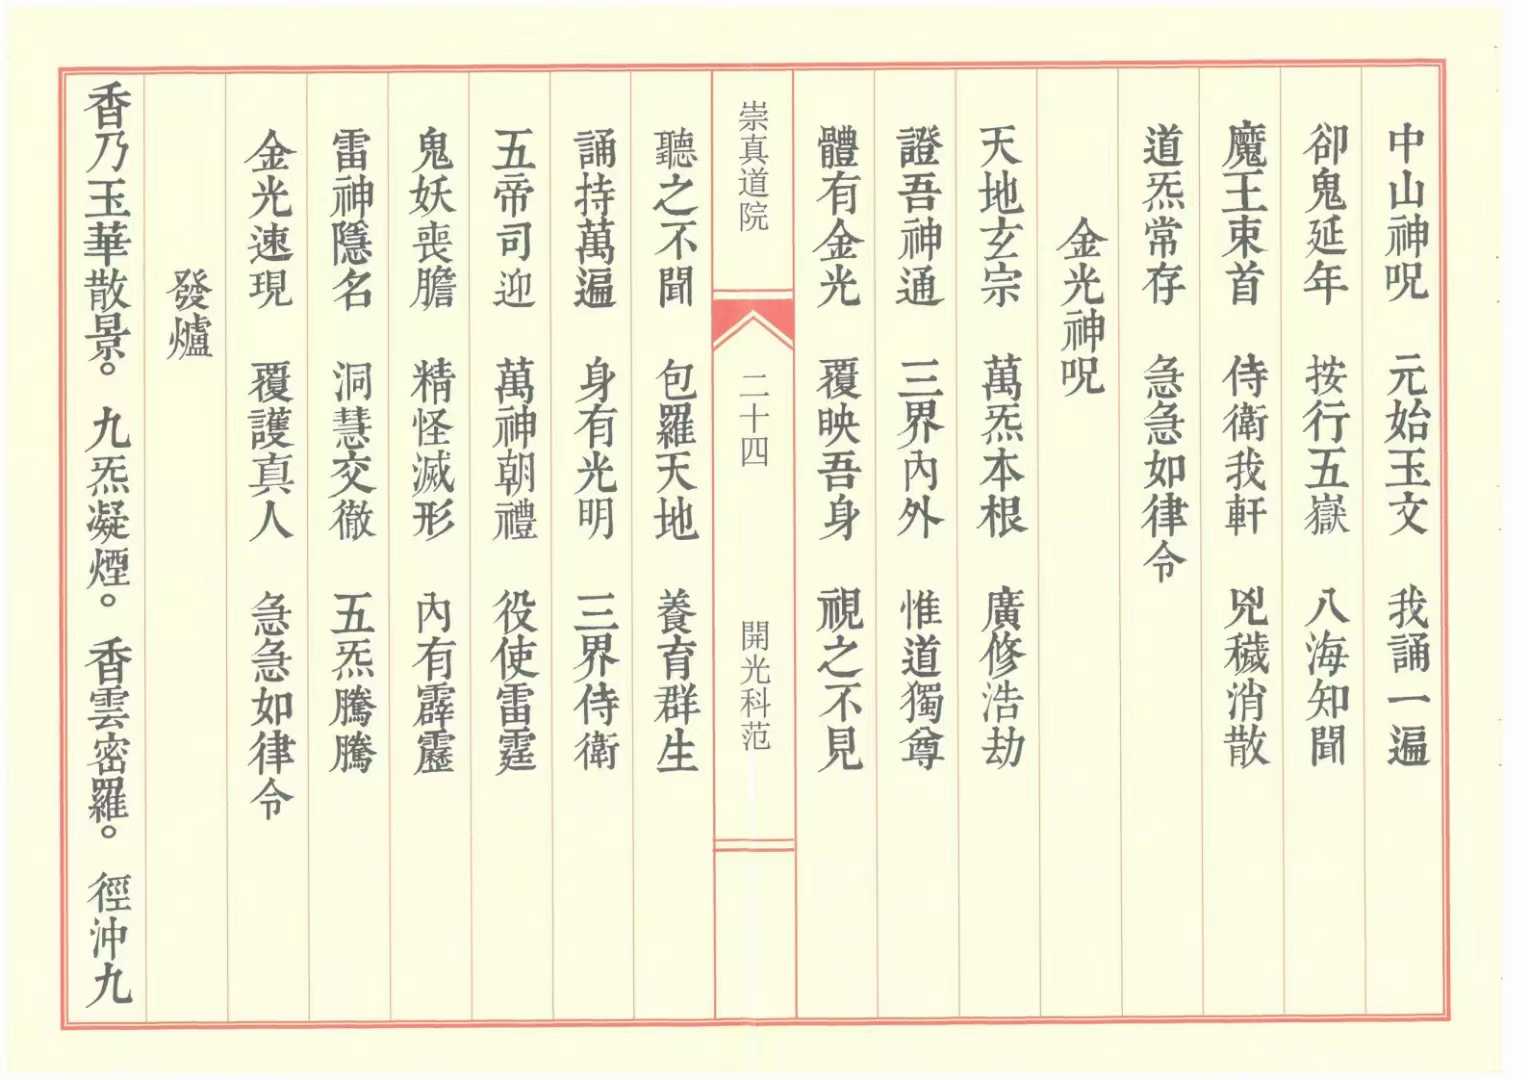 中山神呪　元始玉文　我誦一遍
卻鬼延年　按行五嶽　八海知聞
魔王束首　侍衛我軒　兇穢消散
道炁常存　急急如律令
金光神呪
天地玄宗　萬炁本根　廣修浩劫
證吾神通　三界內外　惟道獨尊
體有金光　覆映吾身　視之不見
崇真道院　二十四　開光科范
聽之不聞　包羅天地　養育群生
誦持萬遍　身有光明　三界侍衛
五帝司迎　萬神朝禮　役使雷霆
鬼妖喪膽　精怪滅形　內有霹靂
雷神隱名　洞慧交徹　五炁騰騰
金光速現　覆護真人　急急如律令
發爐
香乃玉華散景。九炁凝煙。香雲密羅。徑沖九